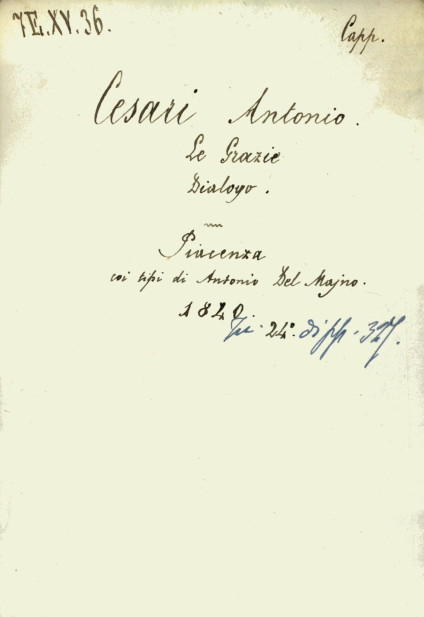 7E.XV.36.
Capp.
Cesari Antonio.
Le Grazie
Dialogo.
Piacenza
coi tipi di Antonio Del Majno.
1840.
In 24°. di pp. 327.